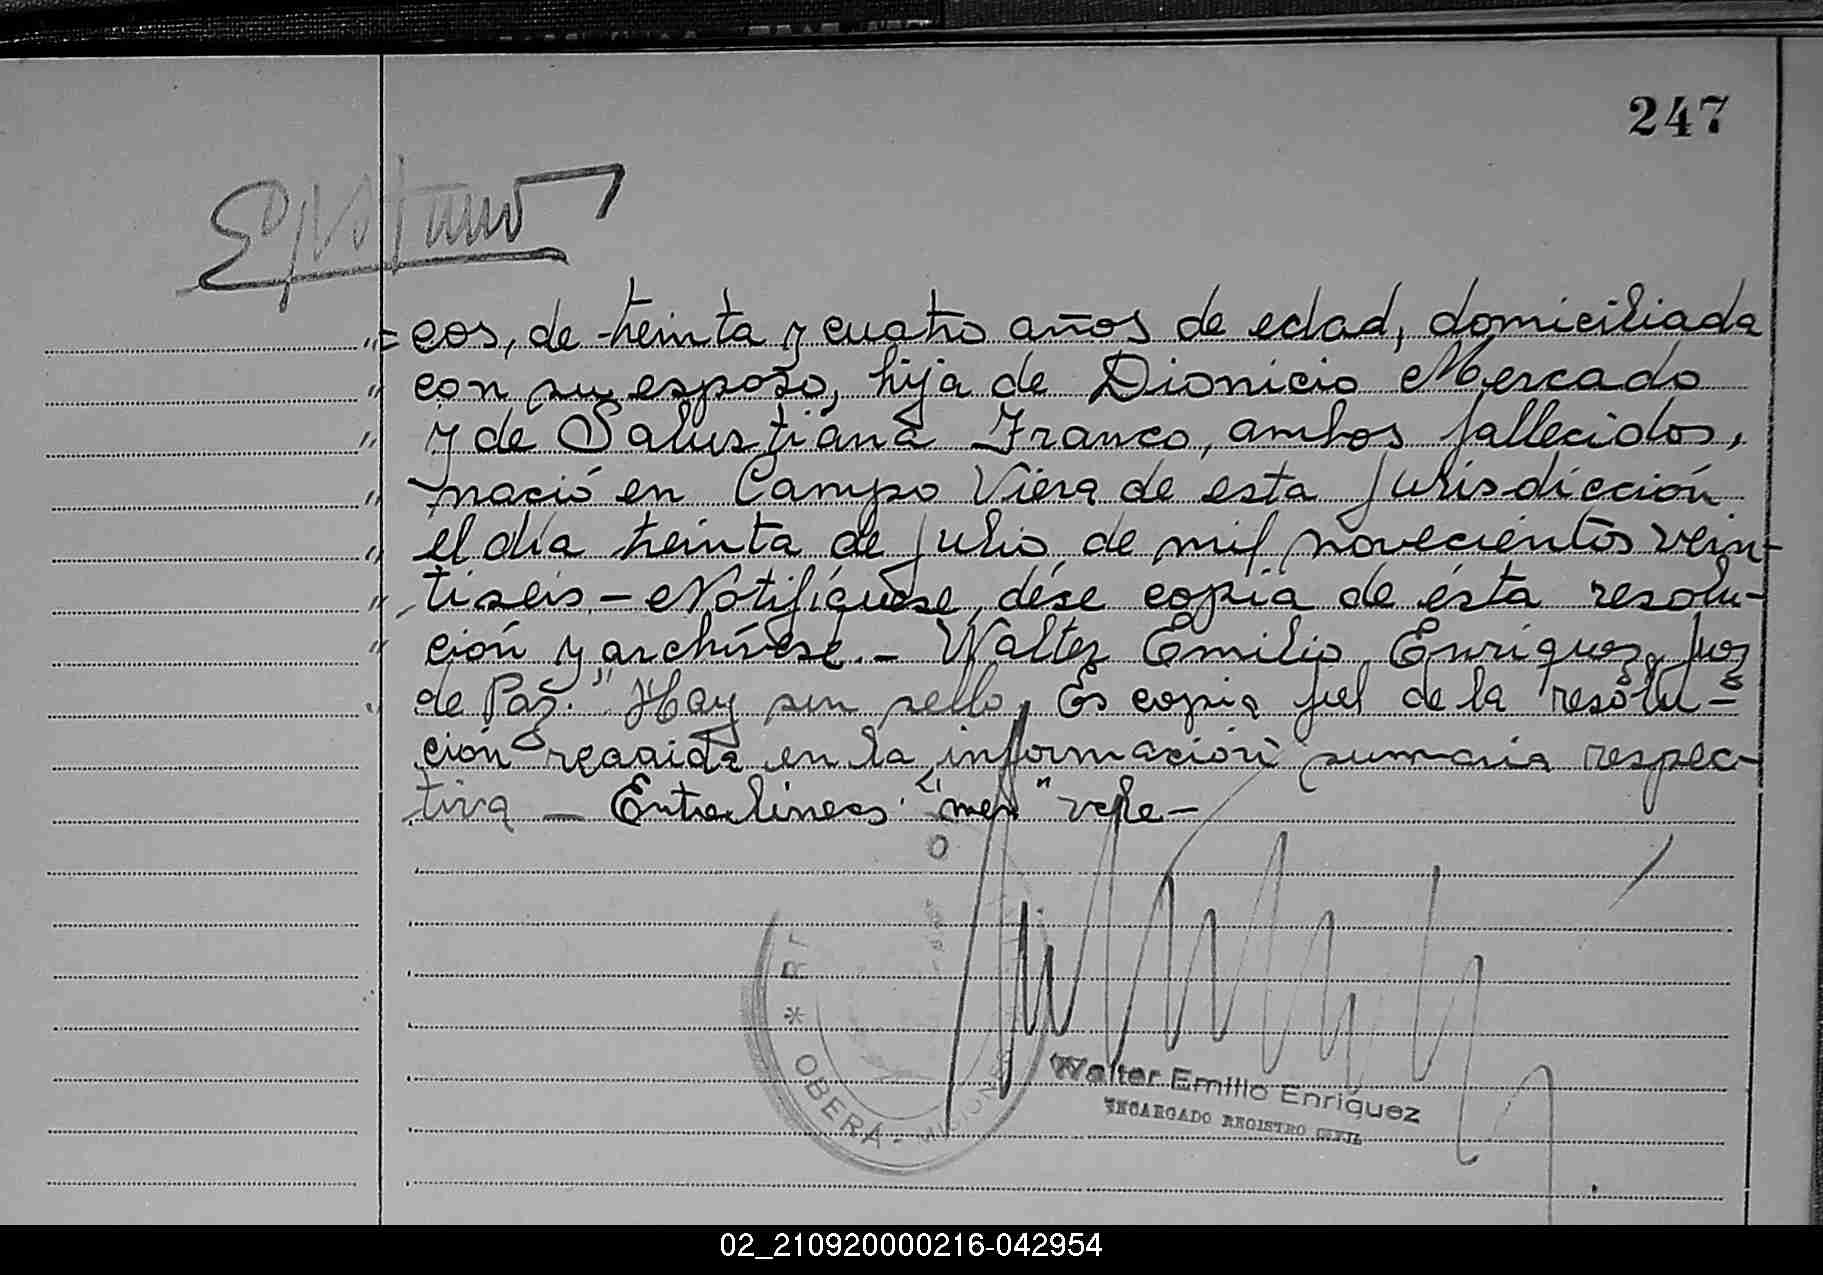 247
"= cos, de treinta y cuatro años de edad, domiciliada
" con su esposo, hija de Dionicio Mercado
" y de Salustiana Franco, ambos fallecidos,
" nació en Campo Viera de esta jurisdicción
" el día treinta de julio de mil novecientos vein-
" tiseis.- Notifíquese, dése copia de ésta resolu-
" ción y archívese.- Walter Emilio Enriquez, Juez
de Paz." Hay un sello. Es copia fiel de la resolu-
ción recaida en la información sumaria respec-
tiva - Entrelineas: "men" vale -
* OBERA - MISIONES
Walter Emilio Enriquez
ENCARGADO REGISTRO CIVIL
02_210920000216-042954